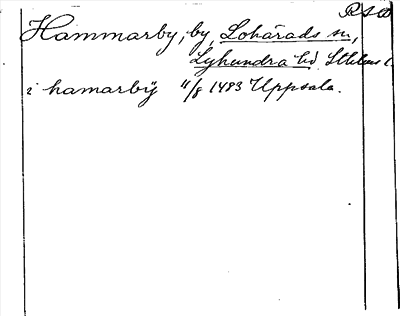 RAB
Hammarby, by, Lohärads sn,
Lyhundra hd Sthlms l.
i hamarbÿ 11/8 1483 Uppsala.